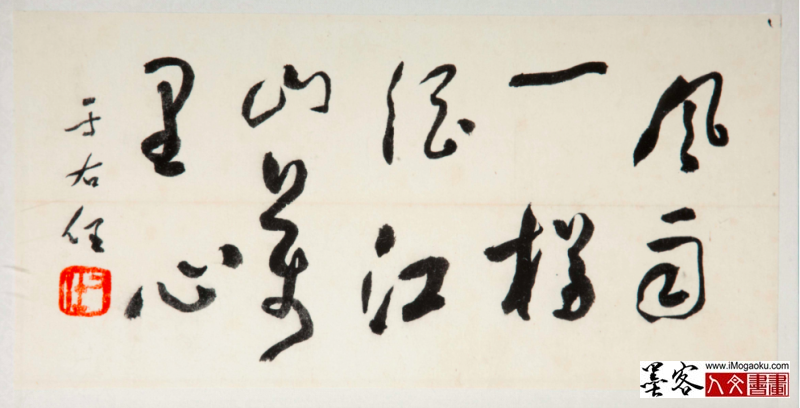 風雨
一樽
酒江
山萬
里心
于右任
墨客
www.iMogaoku.com
人文書畫